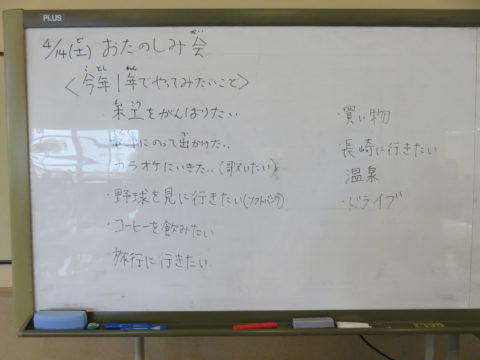 PLUS
4/14(土) おたのしみ会
<今年1年でやってみたいこと>
をがんばりたい
にのって出かけたい
カラオケにいきたい (歌いたい)
・野球を見に行きたい(ソフトバンク)
・コーヒーを飲みたい
・旅行に行きたい
・買い物
・長崎に行きたい
・温泉
・ドライブ